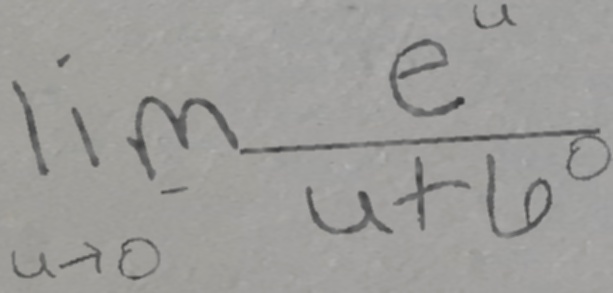 lim_{u→0} \frac{e^u}{u+6^0}